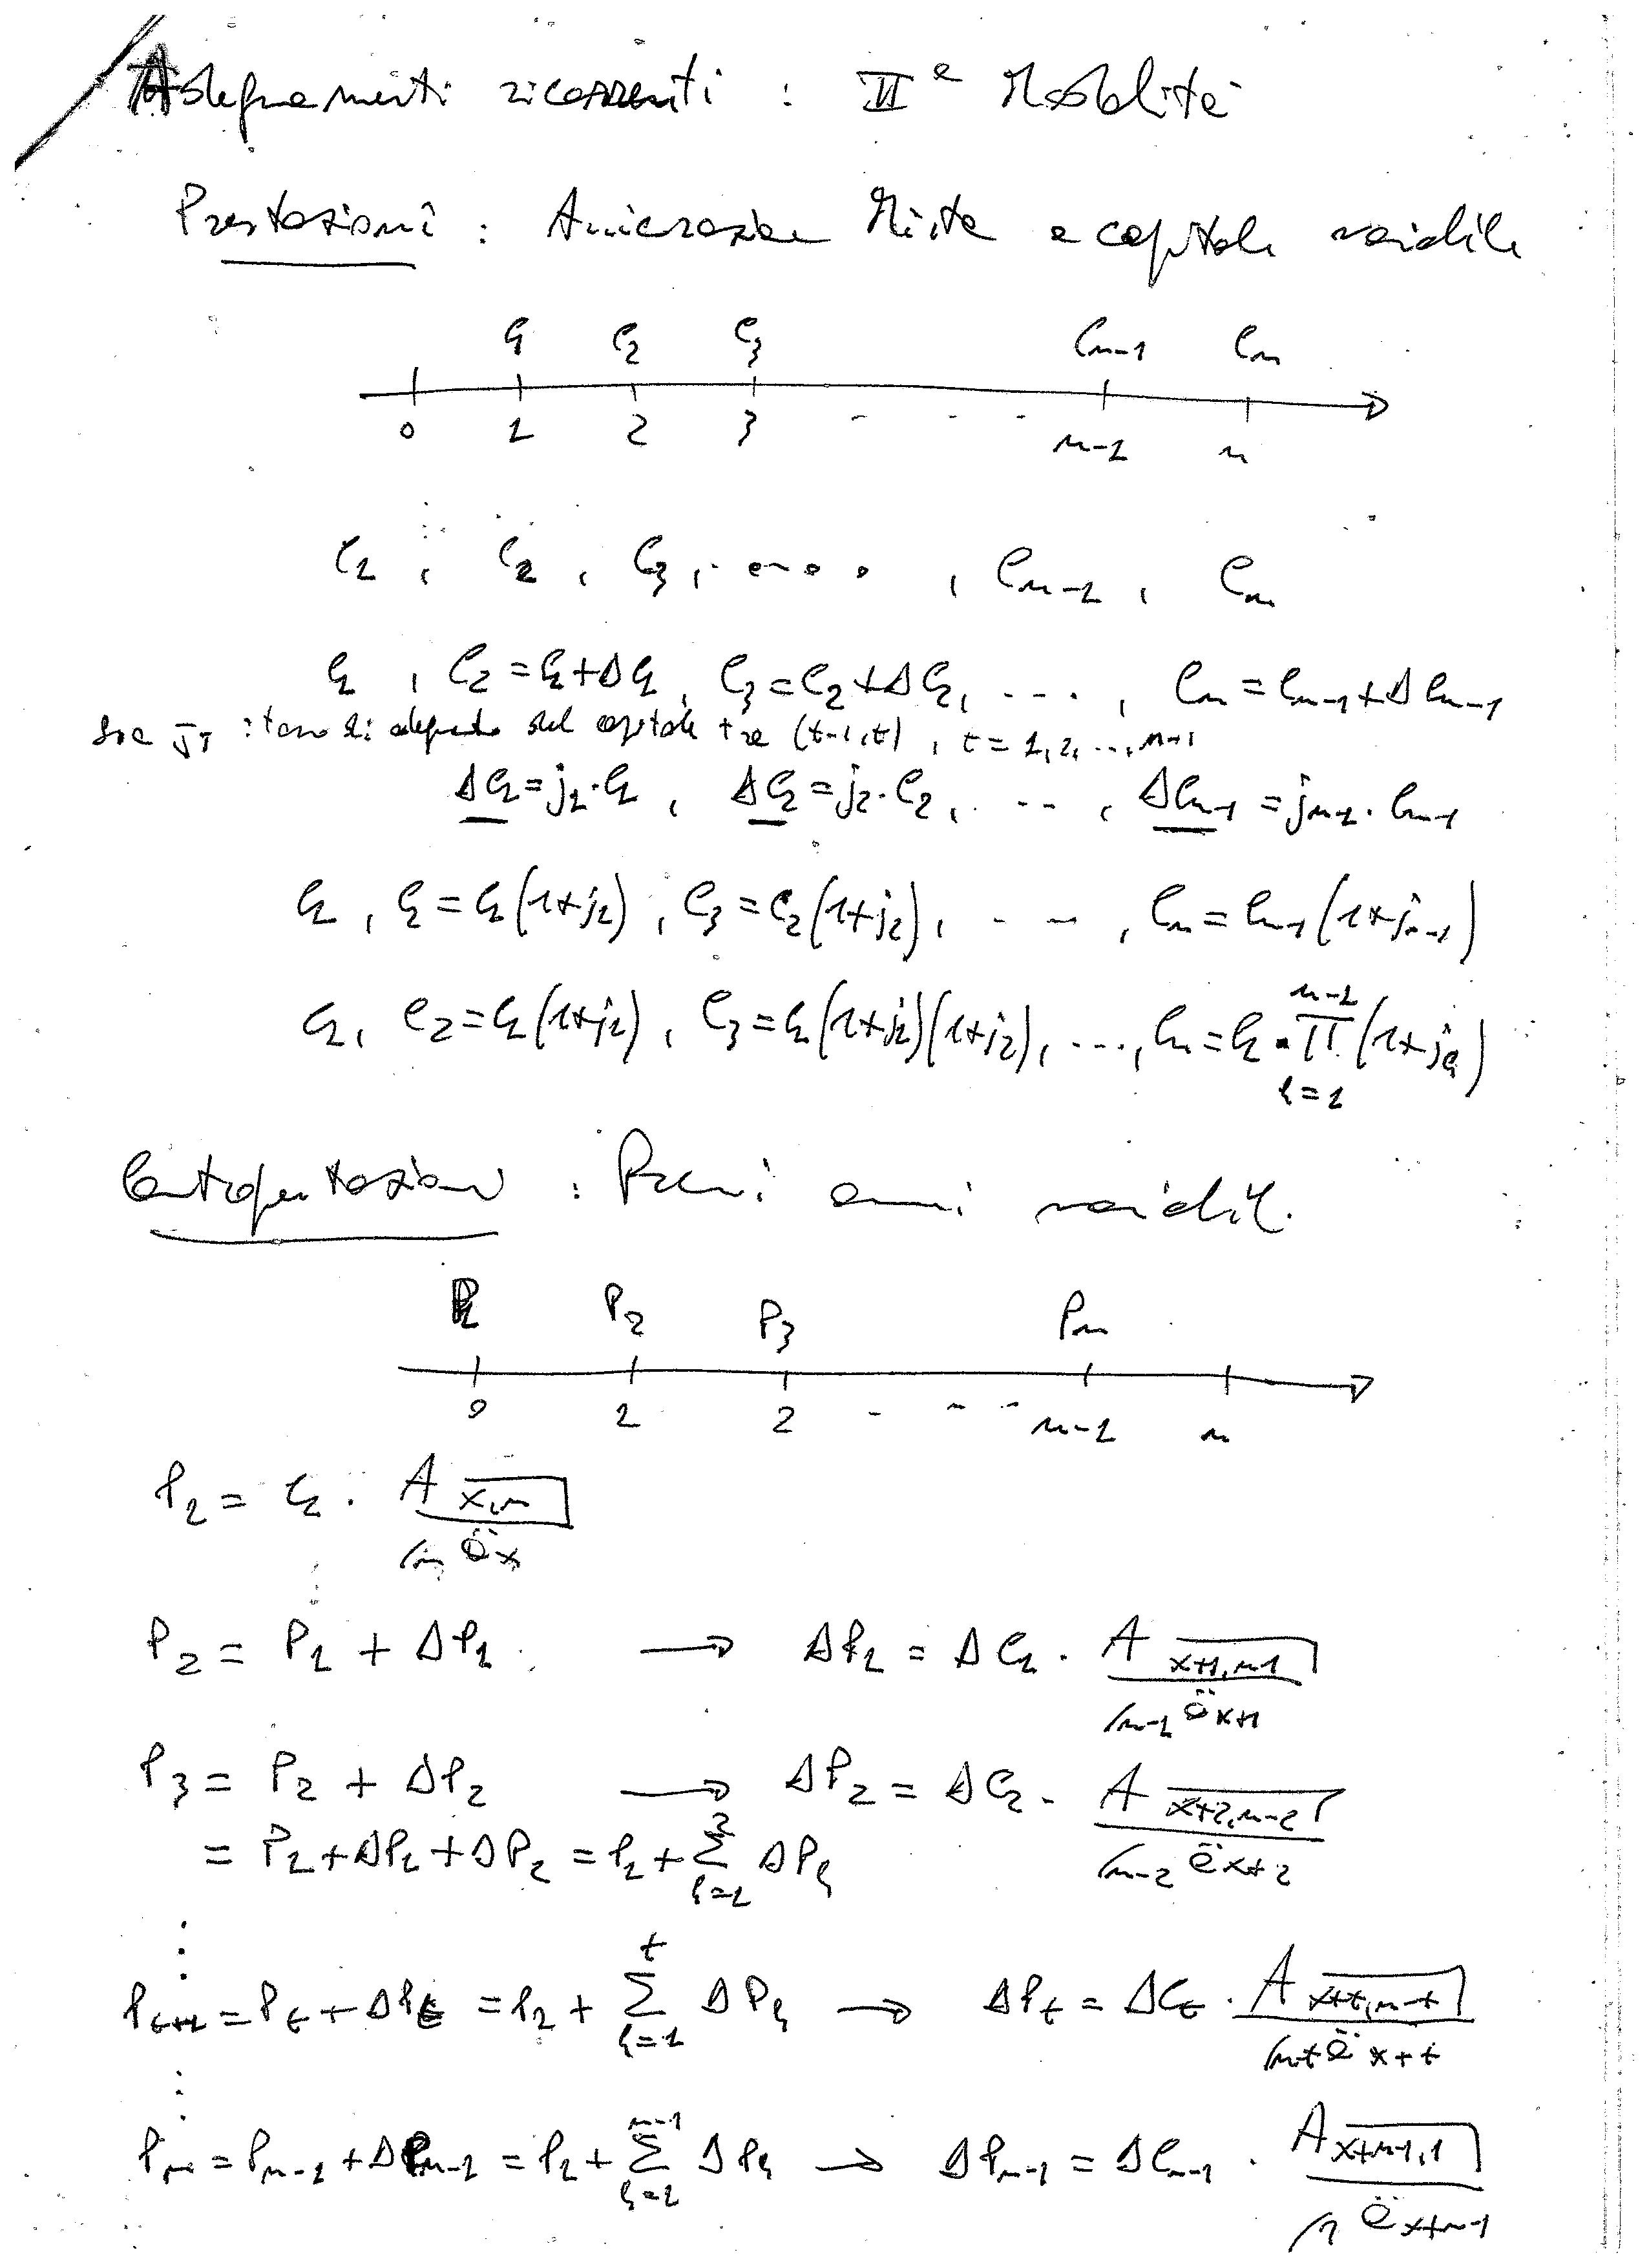 Adeguamenti ricorrenti : IIª Modalità
Prestazioni : Assicurazione Mista a capitale variabile
C₁ C₂ C₃ Cₙ₋₁ Cₙ
0 1 2 3 - - - n-1 n
C₁ , C₂ , C₃ , ..... , Cₙ₋₁ , Cₙ
C₁ , C₂ = C₁+ΔC₁ , C₃ = C₂+ΔC₂ , .... , Cₙ = Cₙ₋₁+ΔCₙ₋₁
Sia jₜ : tasso di adeguamento del capitale tra (t-1,t) , t = 1, 2, ..., n-1
ΔC₁ = j₁·C₁ , ΔC₂ = j₂·C₂ , ... , ΔCₙ₋₁ = jₙ₋₁·Cₙ₋₁
C₁ , C₂ = C₁(1+j₁) , C₃ = C₂(1+j₂) , - - - , Cₙ = Cₙ₋₁(1+jₙ₋₁)
C₁ , C₂ = C₁(1+j₁) , C₃ = C₁(1+j₁)(1+j₂) , ... , Cₙ = C₁ · ∏ₕ₌₁ⁿ⁻¹ (1+jₕ)
Controprestazioni : Premi annui variabili
P₁ P₂ P₃ Pₙ
0 1 2 - - - n-1 n
P₁ = C₁ · A x,n⌉ / /n äx
P₂ = P₁ + ΔP₁ → ΔP₁ = ΔC₁ · A x+1,n-1⌉ / /n-1 äx+1
P₃ = P₂ + ΔP₂ → ΔP₂ = ΔC₂ · A x+2,n-2⌉ / /n-2 äx+2
= P₁+ΔP₁+ΔP₂ = P₁ + ∑ₕ₌₁² ΔPₕ
⋮
Pₜ₊₁ = Pₜ + ΔPₜ = P₁ + ∑ₕ₌₁ᵗ ΔPₕ → ΔPₜ = ΔCₜ · A x+t,n-t⌉ / /n-t äx+t
⋮
Pₙ = Pₙ₋₁ + ΔPₙ₋₁ = P₁ + ∑ₕ₌₁ⁿ⁻¹ ΔPₕ → ΔPₙ₋₁ = ΔCₙ₋₁ · A x+n-1,1⌉ / /1 äx+n-1